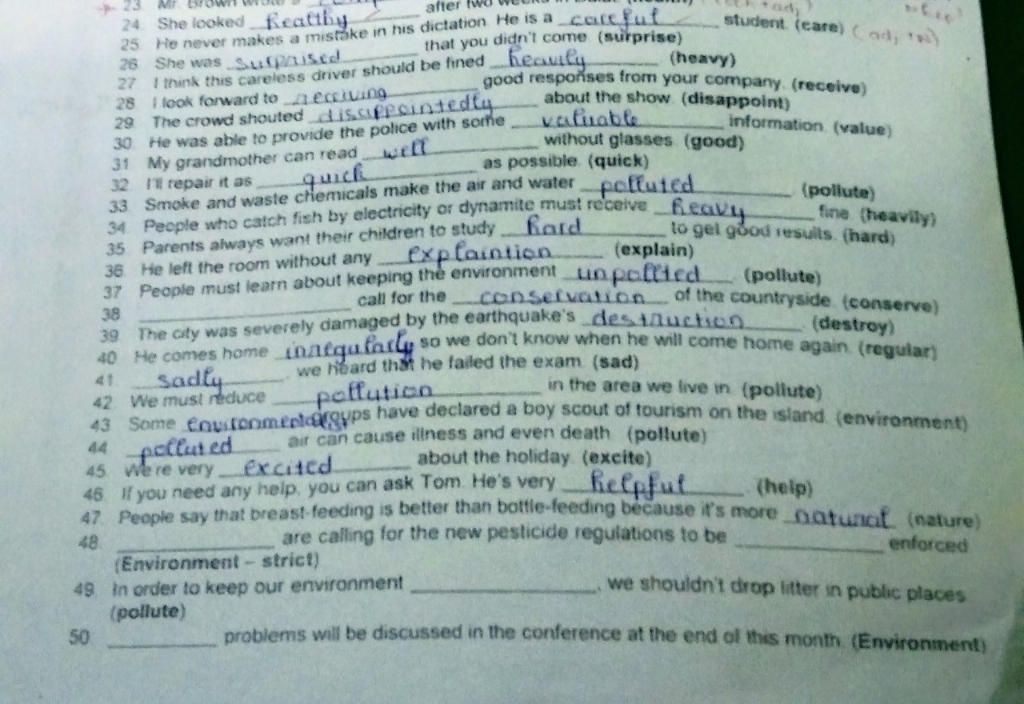 23. Mr. Brown wrote a after two weeks in
24. She looked healthy
25. He never makes a mistake in his dictation. He is a careful student. (care) (adj + n)
26. She was surprised that you didn't come (surprise)
27. I think this careless driver should be fined heavily (heavy)
28. I look forward to receiving good responses from your company. (receive)
29. The crowd shouted disappointedly about the show. (disappoint)
30. He was able to provide the police with some valuable information (value)
31. My grandmother can read well without glasses (good)
32. I'll repair it as quick as possible. (quick)
33. Smoke and waste chemicals make the air and water polluted (pollute)
34. People who catch fish by electricity or dynamite must receive heavy fine. (heavily)
35. Parents always want their children to study hard to get good results. (hard)
36. He left the room without any explaintion (explain)
37. People must learn about keeping the environment unpollted (pollute)
38. call for the conservation of the countryside. (conserve)
39. The city was severely damaged by the earthquake's destruction (destroy)
40. He comes home irregularly so we don't know when he will come home again. (regular)
41. sadly, we heard that he failed the exam. (sad)
42. We must reduce pollution in the area we live in. (pollute)
43. Some environmental groups have declared a boy scout of tourism on the island. (environment)
44. polluted air can cause illness and even death. (pollute)
45. We're very excited about the holiday. (excite)
46. If you need any help, you can ask Tom. He's very helpful. (help)
47. People say that breast-feeding is better than bottle-feeding because it's more natural (nature)
48. are calling for the new pesticide regulations to be enforced
(Environment – strict)
49. In order to keep our environment, we shouldn't drop litter in public places
(pollute)
50. problems will be discussed in the conference at the end of this month. (Environment)